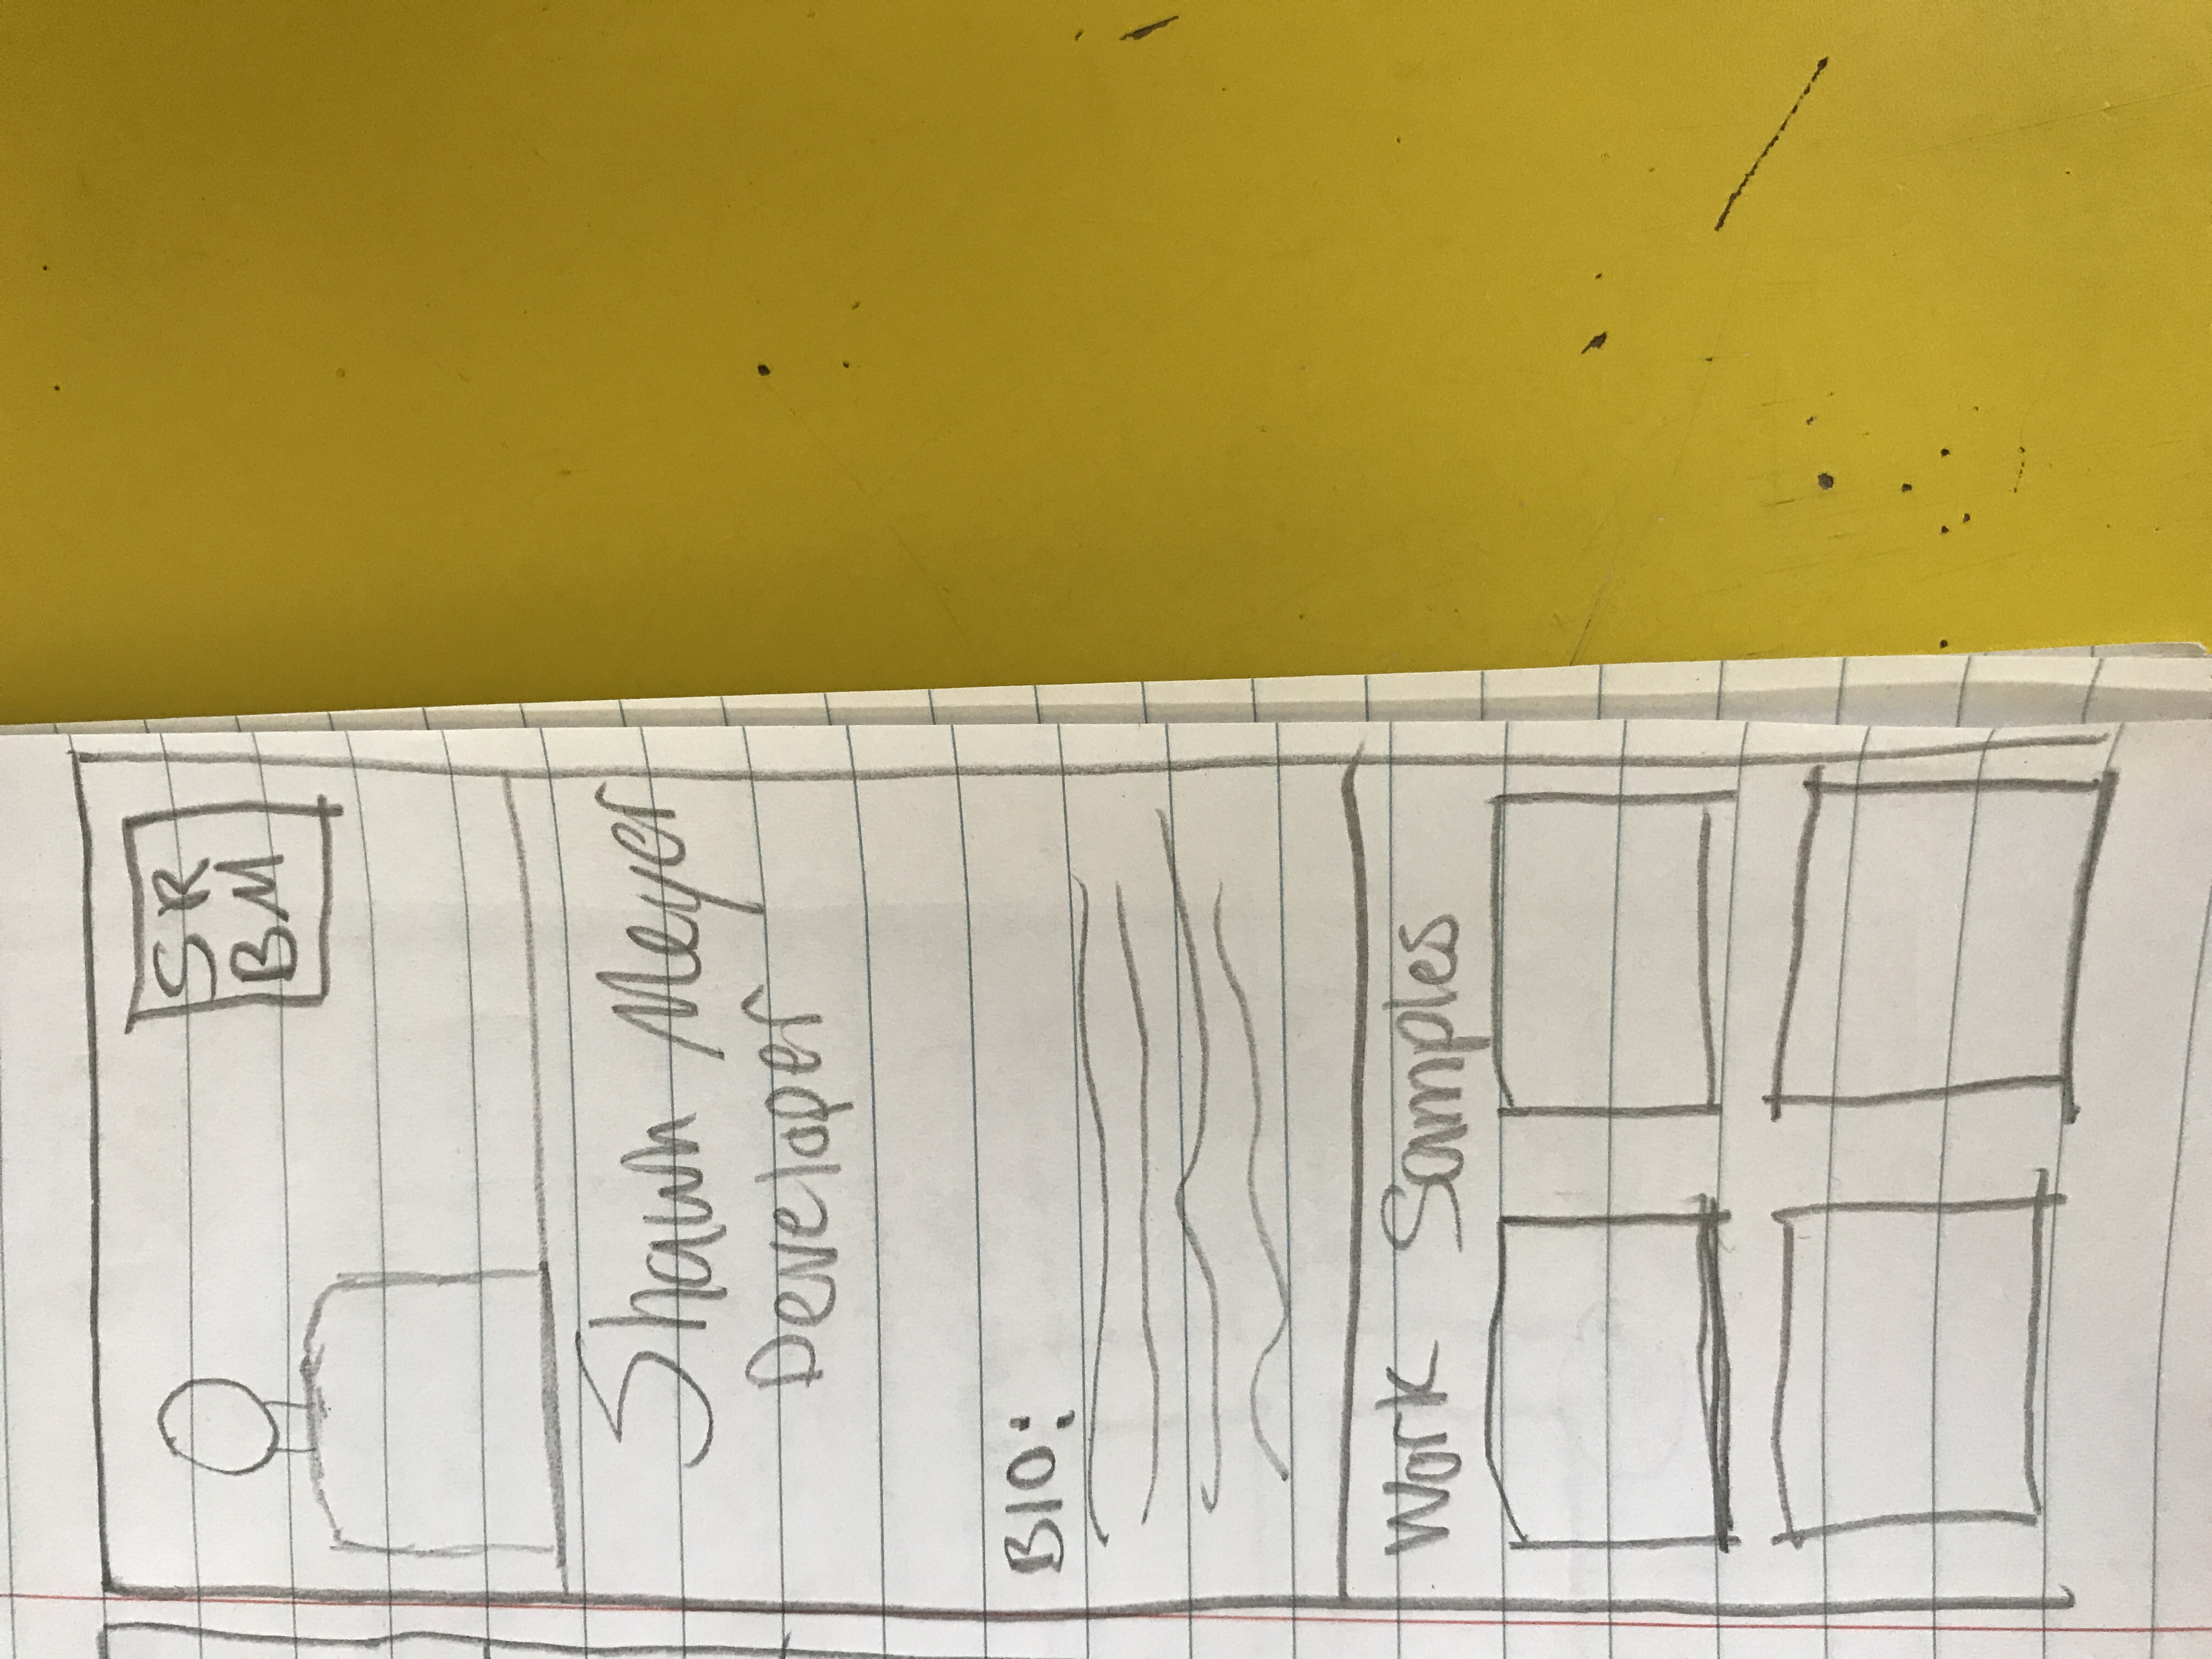 S R
B M
Shawn Meyer
Developer
BIO:
Work Samples